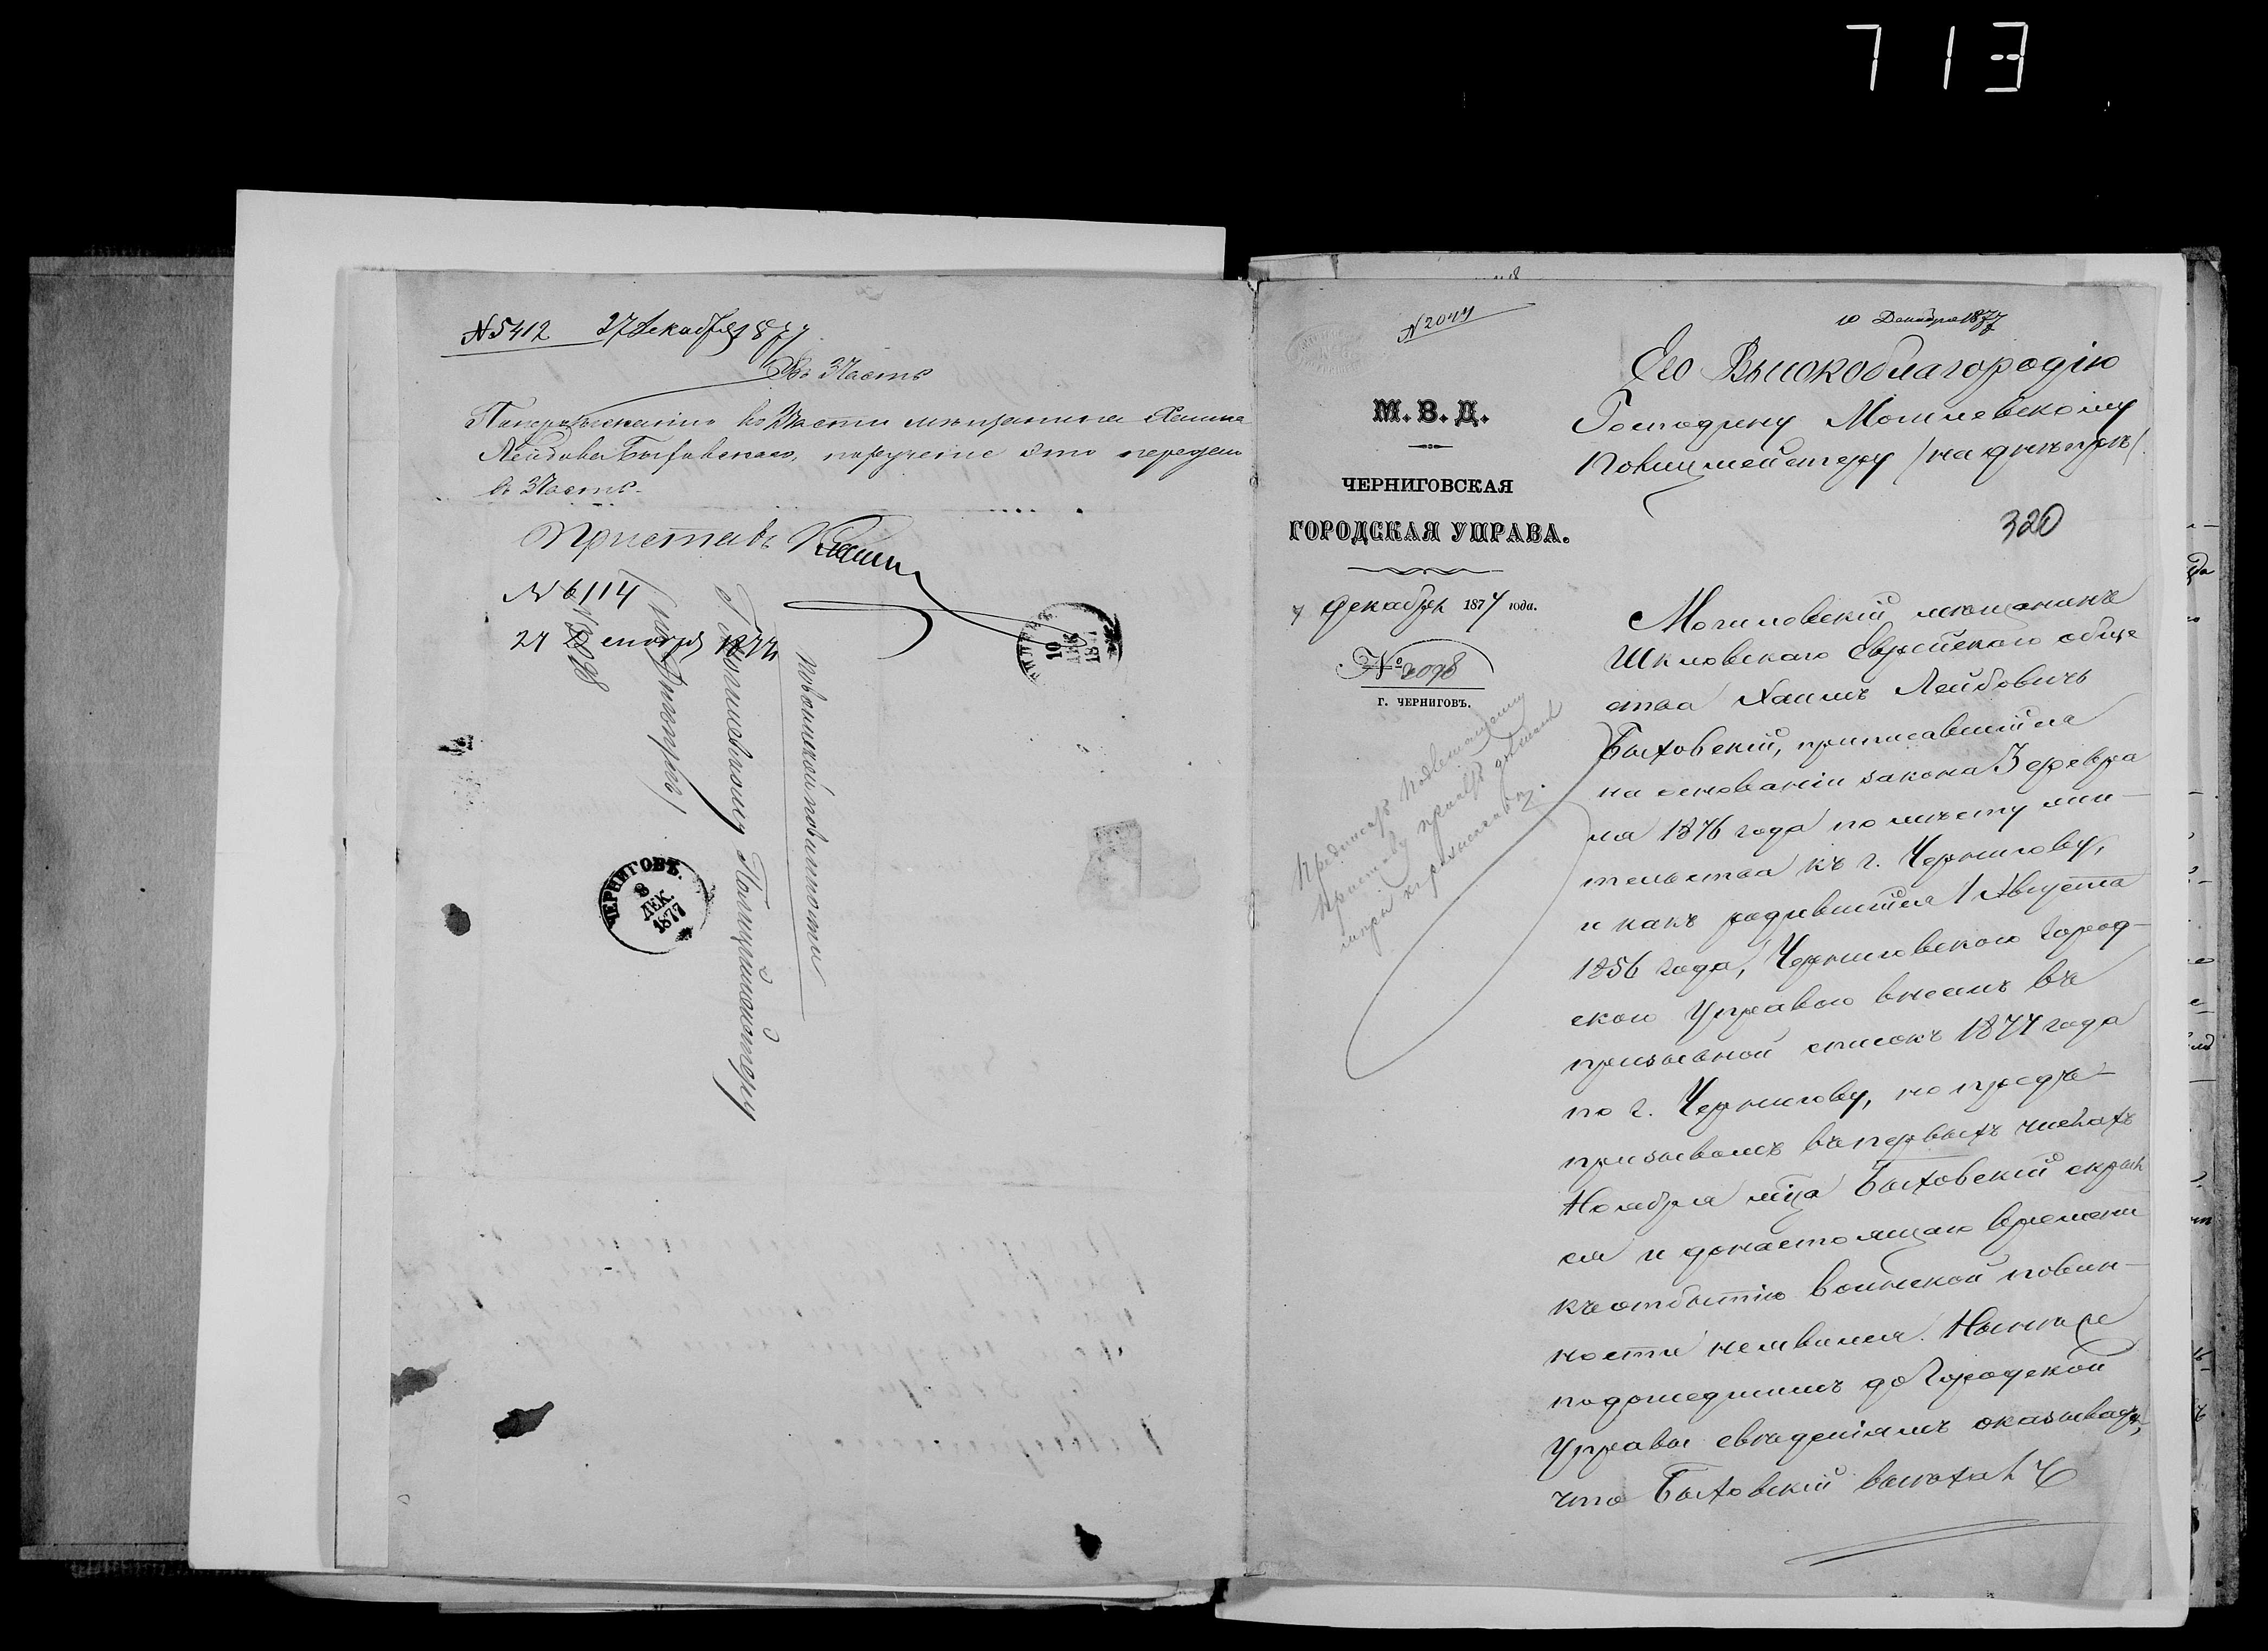 713
№ 5412 27 Декабря 1877
Въ 3 Часть
въ 2 Части мещанина Хаима
Лейбова Быховскаго, порученіе это передано
въ 3 Часть.
Приставъ
№ 6114
27 1877
По воинской повинности
Могилевскому Полицiймейстеру
(на Днѣпрѣ)
№ 2098
10
ДЕК.
1877
ЧЕРНИГОВЪ.
8
ДЕК.
1877
№ 2044
10 Декабря 1877
Его Высокоблагородію
Господину Могилевскому
Полицмейстеру (на Днѣпрѣ).
320
М. В. Д.
ЧЕРНИГОВСКАЯ
ГОРОДСКАЯ УПРАВА.
7 Декабря 1877 года.
№ 2098
Г. ЧЕРНИГОВЪ.
Могилевскій мѣщанинъ
Шкловскаго Еврейскаго обще
ства Хаимъ Лейбовичъ
Быховскій, приписавшійся
на основаніи закона 3 февра
ля 1876 года по мѣсту жи-
тельства къ г. Чернигову,
и какъ родившійся 1 Августа
1856 года, Черниговскою Город-
скою Управою внесенъ въ
призывной списокъ 1877 года
по г. Чернигову, но предъ
призывомъ въ первыхъ числахъ
Ноября м̃ца Быховскій скрыл
ся и до настоящаго времени
къ отбытію воинской повин-
ности не явился. Нынѣ же
по дошедшимъ до Городской
Управы свѣдѣніямъ оказывается,
что Быховскій выѣхалъ